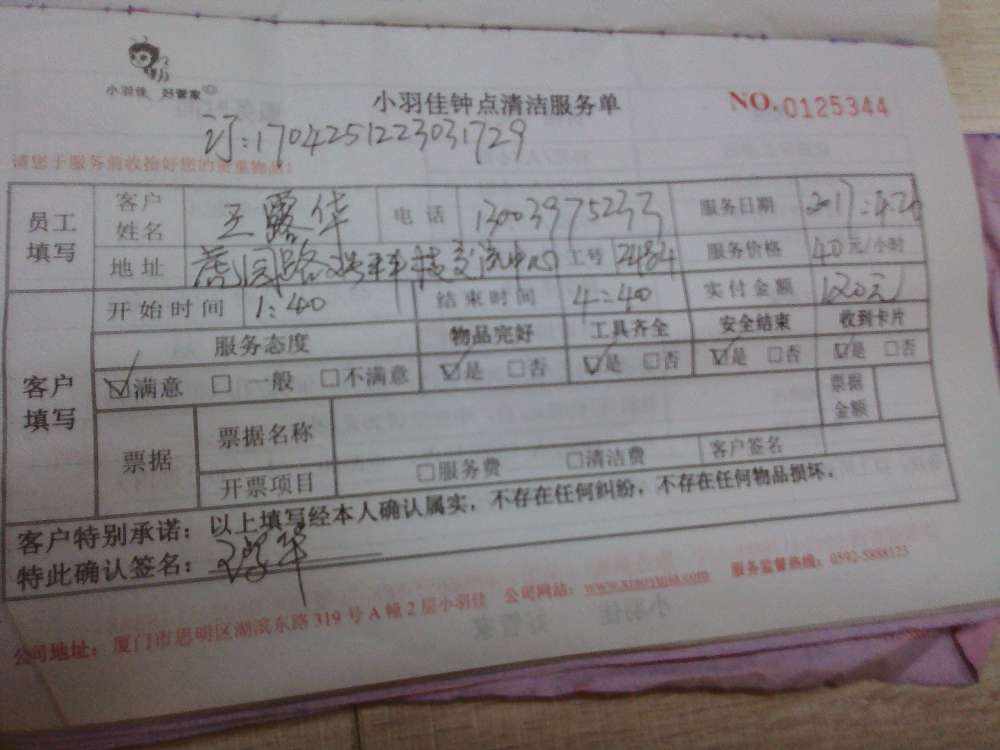 小羽佳 好管家
小羽佳钟点清洁服务单
NO.0125344
订:1704251223031729
请您于服务前收拾好您的贵重物品!
员工填写 客户姓名 王露华 电话 13003975233 服务日期 2017.4.26
地址 交流中心 工号 2484 服务价格 40元/小时
客户填写 开始时间 1:40 结束时间 4:40 实付金额 120元
服务态度 物品完好 工具齐全 安全结束 收到卡片
☑满意 □一般 □不满意 ☑是 □否 ☑是 □否 ☑是 □否 ☑是 □否
票据 票据名称 票据金额
开票项目 □服务费 □清洁费 客户签名
客户特别承诺:以上填写经本人确认属实,不存在任何纠纷,不存在任何物品损坏。
特此确认签名:
公司地址:厦门市思明区湖滨东路319号A幢2层小羽佳 公司网站:www.xiaoyujia.com 服务监督热线:0592-5888123